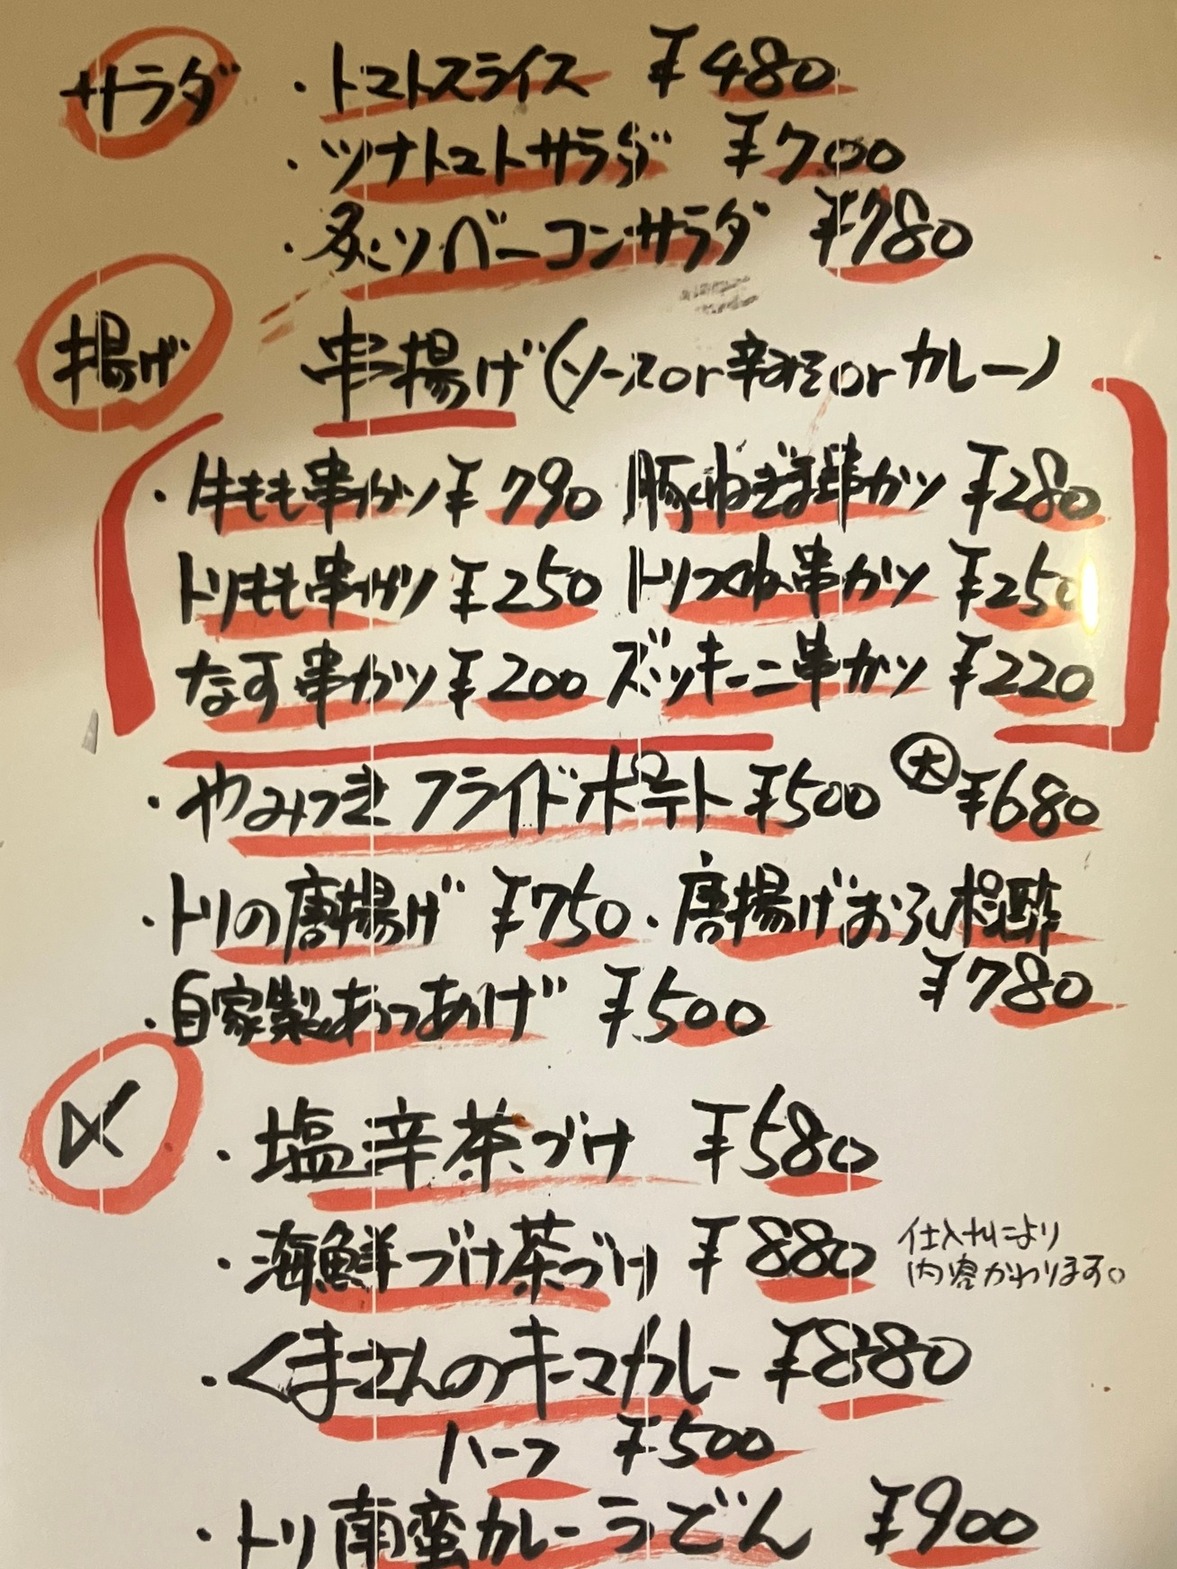 サラダ ・トマトスライス ¥480
・ツナトマトサラダ ¥700
・炙りベーコンサラダ ¥780
揚げ 串揚げ(ソースor辛みそorカレー)
・牛もも串かツ ¥790 豚ねぎま串かツ ¥280
トリもも串かツ ¥250 トリつくね串かツ ¥250
なす串かツ ¥200 ズッキーニ串かツ ¥220
・やみつきフライドポテト ¥500 大 ¥680
・トリの唐揚げ ¥750 ・唐揚げおろしポン酢
¥780
・自家製あつあげ ¥500
〆 ・塩辛茶づけ ¥580
・海鮮づけ茶づけ ¥880 仕入れにより
内容かわります。
・くまさんのキーマカレー ¥880
ハーフ ¥500
・トリ南蛮カレーうどん ¥900